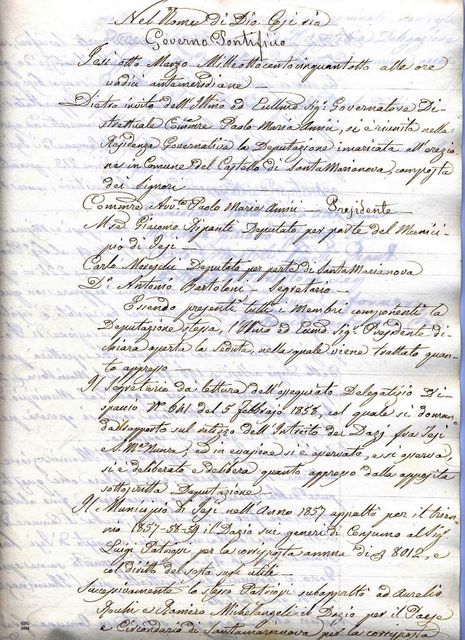 Nel Nome di Dio Così sia
Governo Pontificio
Jesi otto Marzo Milleottocentocinquantotto alle ore
undici antemeridiane
Dietro invito dell'Illmo ed Eccllmo Sigr Governatore Di-
strettuale Commre Paolo Maria Annii, si è riunita nella
Residenza Governativa la Deputazione incaricata all'erezio
ne in Comune del Castello di Santa Marianova, composta
dei Signori
Commre Avvto Paolo Maria Annii Presidente
Giacomo Ripanti Deputato per parte del Munici-
pio di Jesi
Carlo Deputato per parte di Santa Marianova
Dr Antonio Bartoloni Segretario
Essendo presenti tutti i Membri componenti la
Deputazione stessa, l'Illmo ed Eccmo Sigr Presidente di-
chiara aperta la Seduta, nella quale viene trattato quan-
to appresso
Il Segretario dà lettura dell'ossequiato Delegatizio Di-
spaccio N° 641 del 5 Febbrajo 1858, col quale si doman-
da rapporto sul retizzo dell'Introito dei Dazj fra Jesi
e S. Ma Nuova; ed in evasione si è osservato, e si osserva,
si è deliberato e delibera quanto appresso dalla apposita
sottoscritta Deputazione
Il Municipio di Jesi nell'Anno 1857 appaltò per il trien-
nio 1857-58-59 il Dazio sui generi di Consumo al Sigr
Luigi Patrizi per la corrisposta annua di 8012, e
col diritto del sesto sugli utili
Successivamente lo stesso Patrizi subappaltò ad Aurelio
e Ramiero Michelangeli il Dazio per il Paese
e Circondario di Santamarianova per la corrisposta